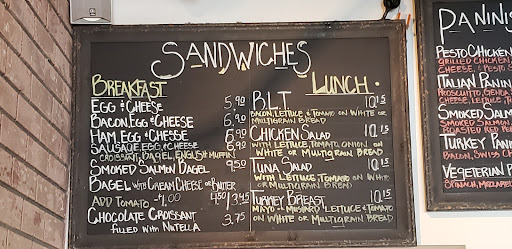 SANDWICHES
BREAKFAST
EGG & CHEESE 5.90
BACON, EGG & CHEESE 6.90
HAM, EGG & CHEESE 6.90
SAUSAGE, EGG, & CHEESE 6.90
CROISSANT, BAGEL, ENGLISH MUFFIN
SMOKED SALMON BAGEL 9.95
BAGEL WITH CREAM CHEESE OR BUTTER
ADD TOMATO - 1.00 4.50 / 3.45
CHOCOLATE CROISSANT 3.75
FILLED WITH NUTELLA
LUNCH
B.L.T. 10.15
BACON, LETTUCE & TOMATO ON WHITE OR
MULTIGRAIN BREAD
CHICKEN SALAD 10.15
WITH LETTUCE, TOMATO, ONION ON
WHITE OR MULTIGRAIN BREAD
TUNA SALAD 10.15
WITH LETTUCE, TOMATO ON WHITE
OR MULTIGRAIN BREAD
TURKEY BREAST 10.15
MAYO OR MUSTARD, LETTUCE & TOMATO
ON WHITE OR MULTIGRAIN BREAD
PANINIS
PESTO CHICKEN
GRILLED CHICKEN,
CHEESE, & PESTO
ITALIAN PANIN
PROSCIUTTO, GENOA
CHEESE, LETTUCE, TO
SMOKED SALMO
SMOKED SALMON,
ROASTED RED PE
TURKEY PANI
BACON, SWISS CH
VEGETERIAN P
SPINACH, MOZZAREL